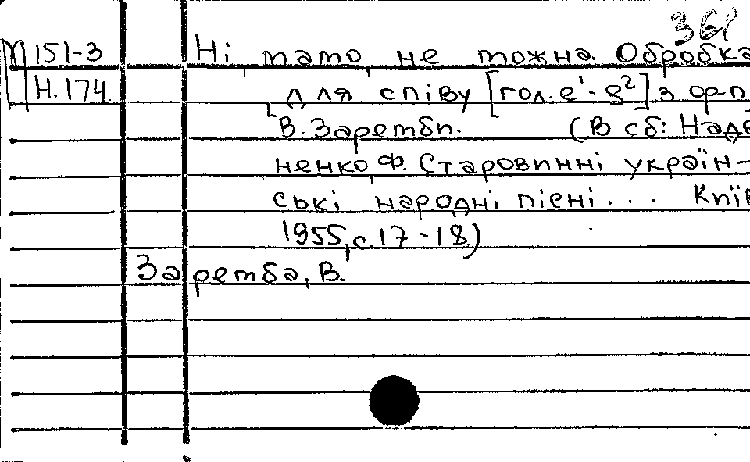 361
М 151-3 Ні, тато, не можна. Обробка
Н.174. для співу [гол. e¹-g²] з ф-п.
В. Заремби. (В сб: Наде
ненко, Ф. Старовинні україн-
ські народні пісні... Київ
1955, с. 17-18)
Заремба, В.